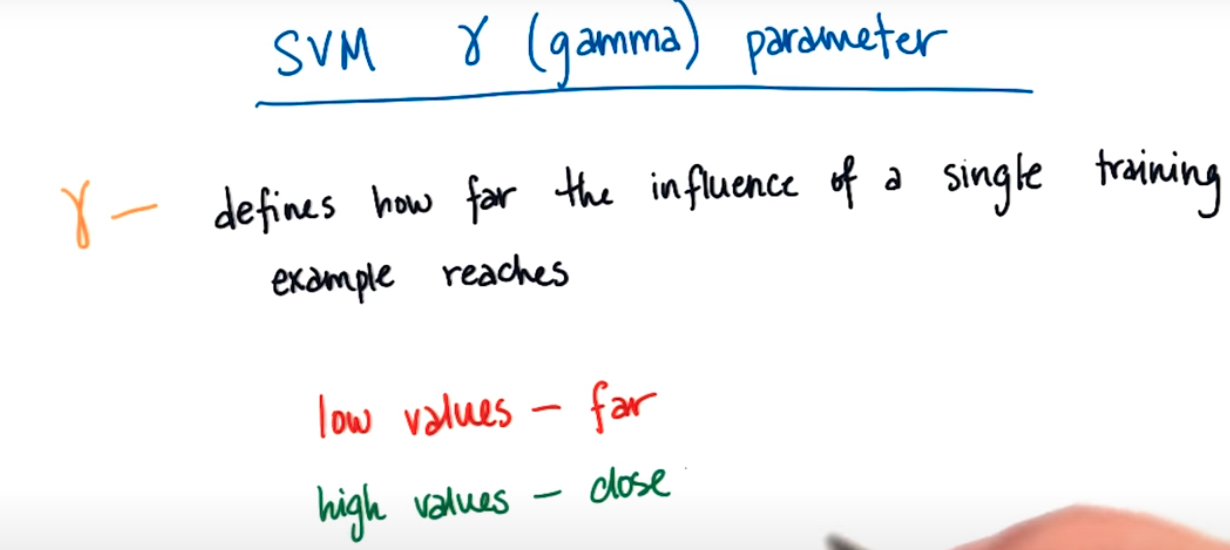 SVM γ (gamma) parameter
γ – defines how far the influence of a single training
example reaches
low values – far
high values – close